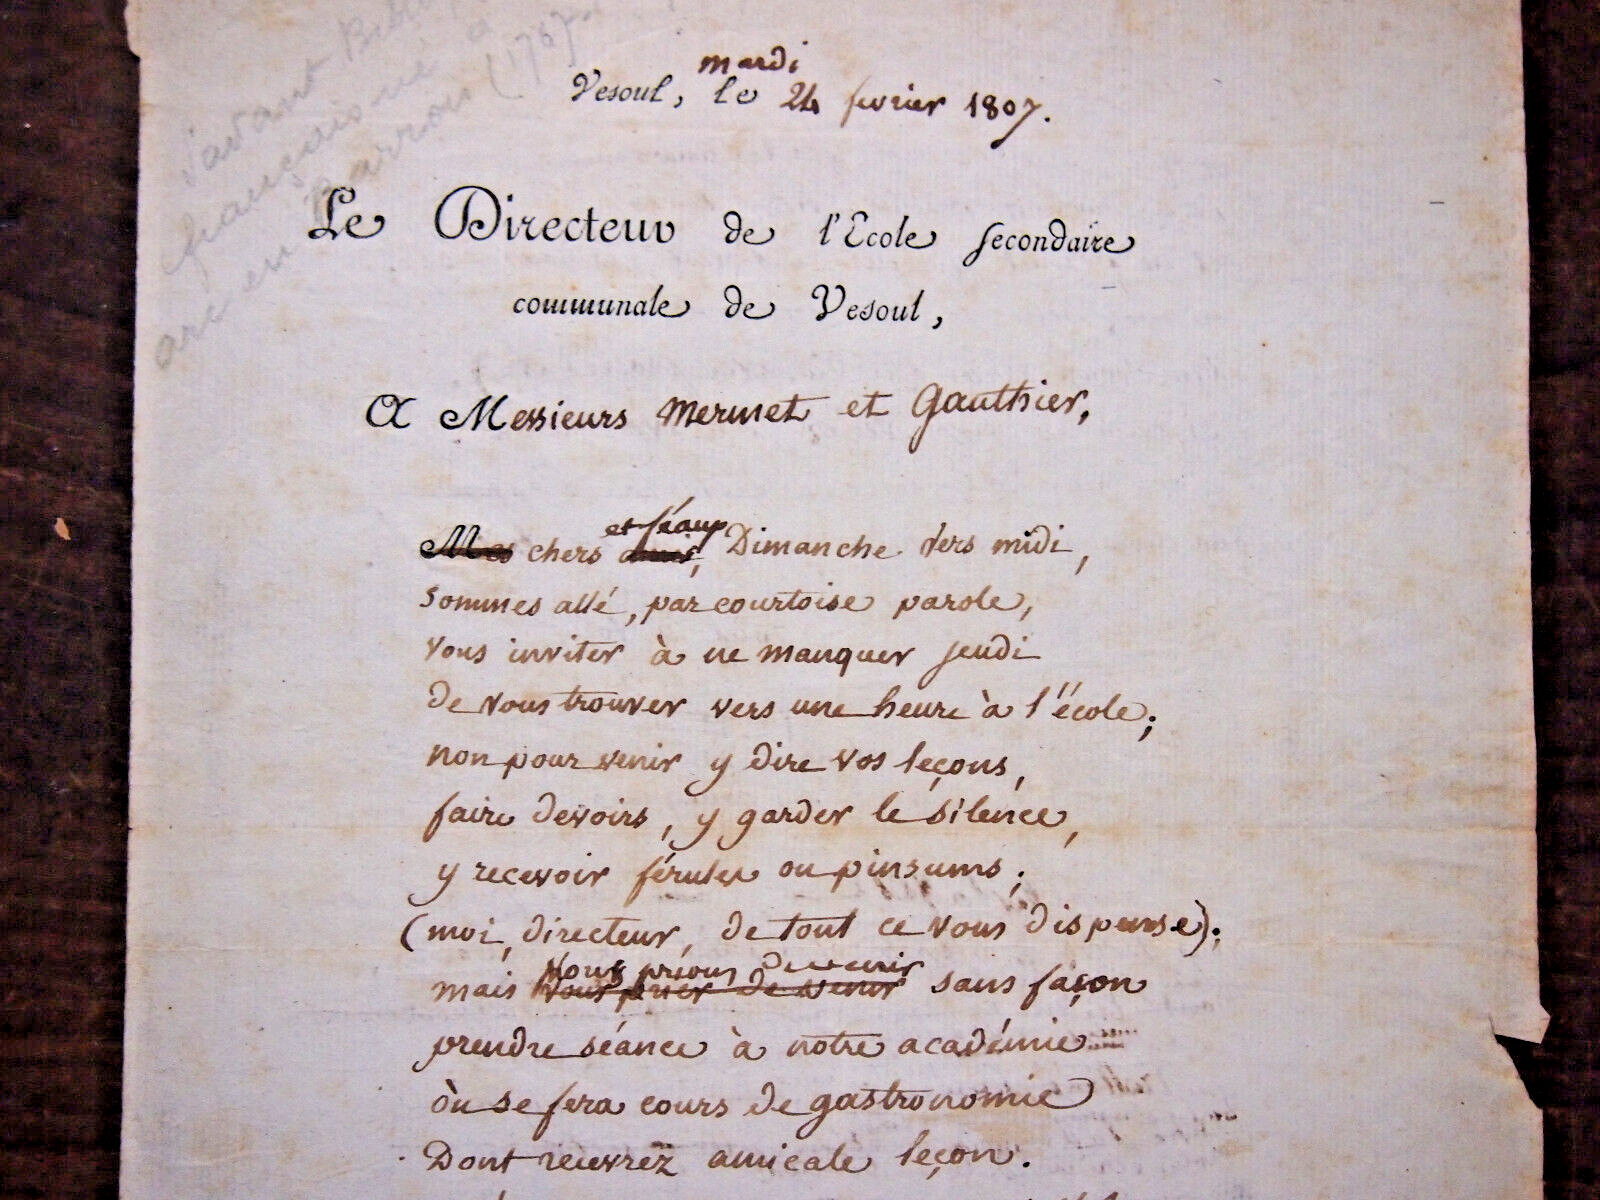 savant
française né à
arc en Barrois (1767
mardi
Vesoul, le 24 fevrier 1807.
Le Directeur de l'Ecole secondaire
communale de Vesoul,
A Messieurs Mermet et Gauthier,
et féaux
Mes chers amis, Dimanche vers midi,
sommes allé, par courtoise parole,
vous inviter à ne manquer jeudi
de vous trouver vers une heure à l'école;
non pour venir y dire vos leçons,
faire devoirs, y garder le silence,
y recevoir férules ou pinsums;
(moi, directeur, de tout ce vous dispense);
vous prions de venir
mais vous prier de venir sans façon
prendre séance à notre académie
où se fera cours de gastronomie
Dont recevrez amicale leçon.